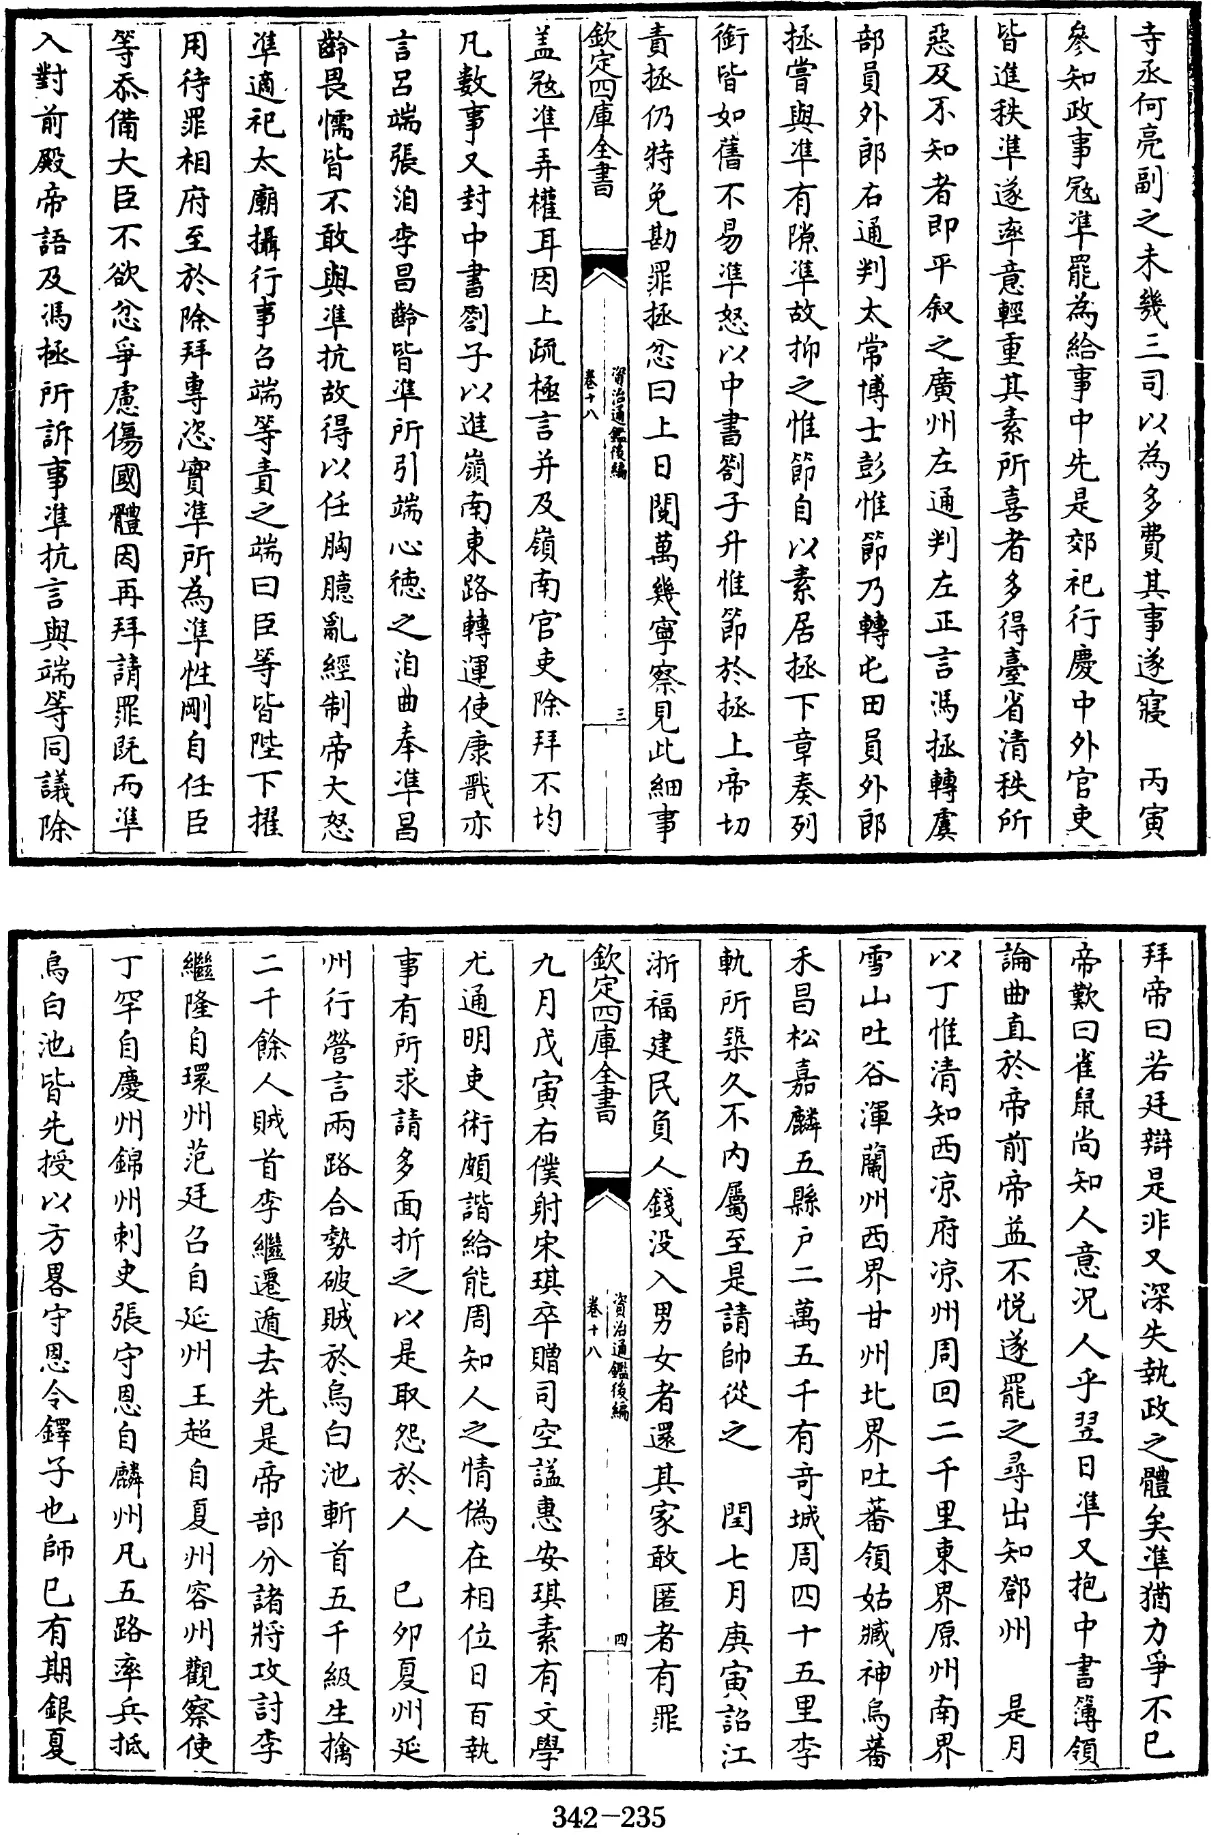 寺丞何亮副之未幾三司以為多費其事遂寢　丙寅
參知政事冦準罷為給事中先是郊祀行慶中外官吏
皆進秩準遂率意輕重其素所喜者多得臺省清秩所
惡及不知者即平叙之廣州左通判左正言馮拯轉虞
部員外郎右通判太常博士彭惟節乃轉屯田員外郎
拯嘗與準有隙準故抑之惟節自以素居拯下章奏列
銜皆如舊不易準怒以中書劄子升惟節於拯上帝切
責拯仍特免勘罪拯忿曰上日閱萬幾寧察見此細事
欽定四庫全書
資治通鑑後編
卷十八
三
盖冦準弄權耳因上疏極言并及嶺南官吏除拜不均
凡數事又封中書劄子以進嶺南東路轉運使康戩亦
言呂端張洎李昌齡皆準所引端心德之洎曲奉準昌
齡畏懦皆不敢與準抗故得以任胸臆亂經制帝大怒
準適祀太廟攝行事召端等責之端曰臣等皆陛下擢
用待罪相府至於除拜專恣實準所為準性剛自任臣
等忝備大臣不欲忿爭慮傷國體因再拜請罪既而準
入對前殿帝語及馮拯所訴事準抗言與端等同議除
拜帝曰若廷辯是非又深失執政之體矣準猶力爭不已
帝歎曰雀鼠尚知人意況人乎翌日準又抱中書簿領
論曲直於帝前帝益不悅遂罷之尋出知鄧州　是月
以丁惟清知西凉府凉州周回二千里東界原州南界
雪山吐谷渾蘭州西界甘州北界吐蕃領姑臧神烏蕃
禾昌松嘉麟五縣户二萬五千有奇城周四十五里李
軌所築久不内屬至是請帥從之　閏七月庚寅詔江
浙福建民負人錢没入男女者還其家敢匿者有罪
欽定四庫全書
資治通鑑後編
卷十八
四
九月戊寅右僕射宋琪卒贈司空諡惠安琪素有文學
尤通明吏術頗諧給能周知人之情偽在相位日百執
事有所求請多面折之以是取怨於人　已夘夏州延
州行營言兩路合勢破賊於烏白池斬首五千級生擒
二千餘人賊首李繼遷遁去先是帝部分諸將攻討李
繼隆自環州范廷召自延州王超自夏州容州觀察使
丁罕自慶州錦州刺史張守恩自麟州凡五路率兵抵
烏白池皆先授以方畧守恩令鐸子也師已有期銀夏
342-235